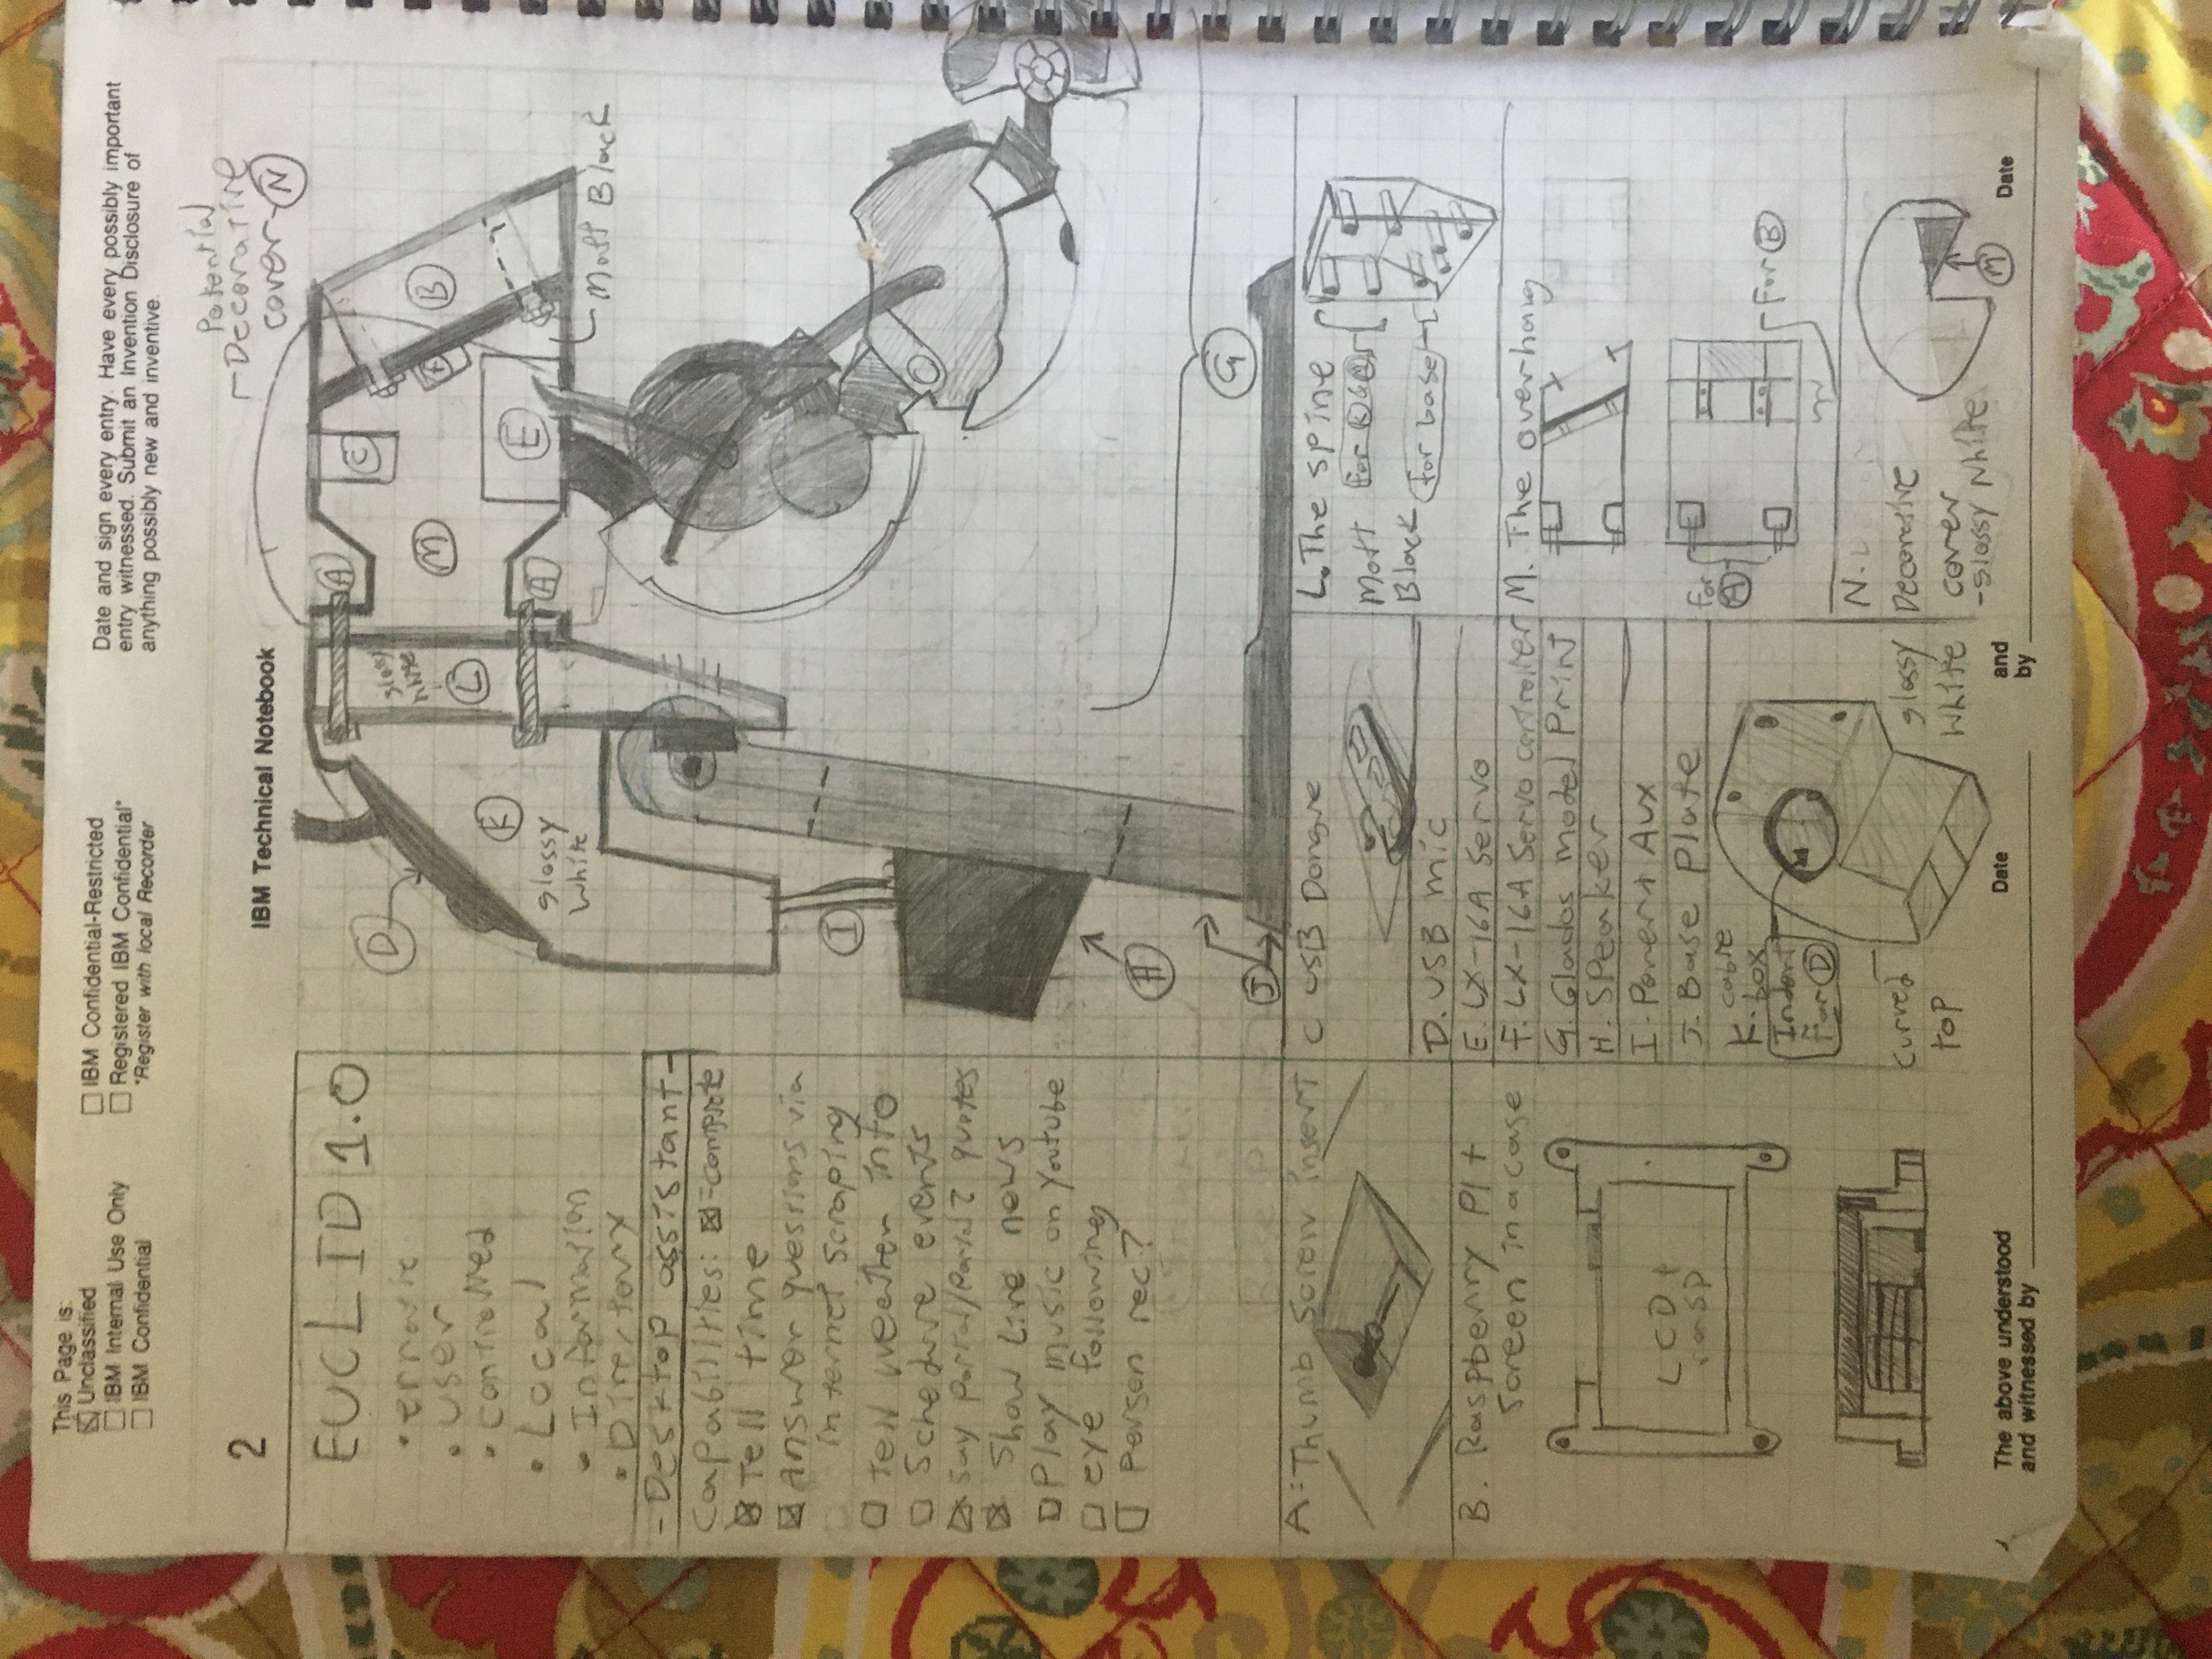 This Page is:
Unclassified
IBM Internal Use Only
IBM Confidential
IBM Confidential-Restricted
Registered IBM Confidential*
*Register with local Recorder
Date and sign every entry. Have every possibly important
entry witnessed. Submit an Invention Disclosure of
anything possibly new and inventive.
2
IBM Technical Notebook
Potential
Decorative
cover N
EUCLID 1.0
• erratic
• user
• controlled
• Local
- Information
• Directory
- Desktop assistant -
Capabilities: ☒ = complete
☒ Tell time
☒ Answer questions via
internet scraping
☐ Tell weather info
☐ Schedule events
☒ Say Portal/Portal 2 quotes
☒ Show Live news
☐ Play music on Youtube
☐ eye following
☐ Person rec?
D
A
C
glossy
white
L
M
F
B
K
glossy
White
A
E
Matt Black
I
H
J
G
A: Thumb Screw insert
B. Raspberry PI +
Screen in a case
LCD +
rasp
C USB Dongle
D. USB mic
E. LX-16A Servo
F. LX-16A Servo controller
G. Glados model Print
H. Speaker
I. Power + Aux
J. Base Plate
K. cable
box
Indent
For D
curved
top
glossy
White
L. The spine
Matt
Black
for K & M
for base
M. The overhang
for
A
For B
N.
Decorative
cover
- glossy White
M
The above understood
and witnessed by
Date
and
by
Date